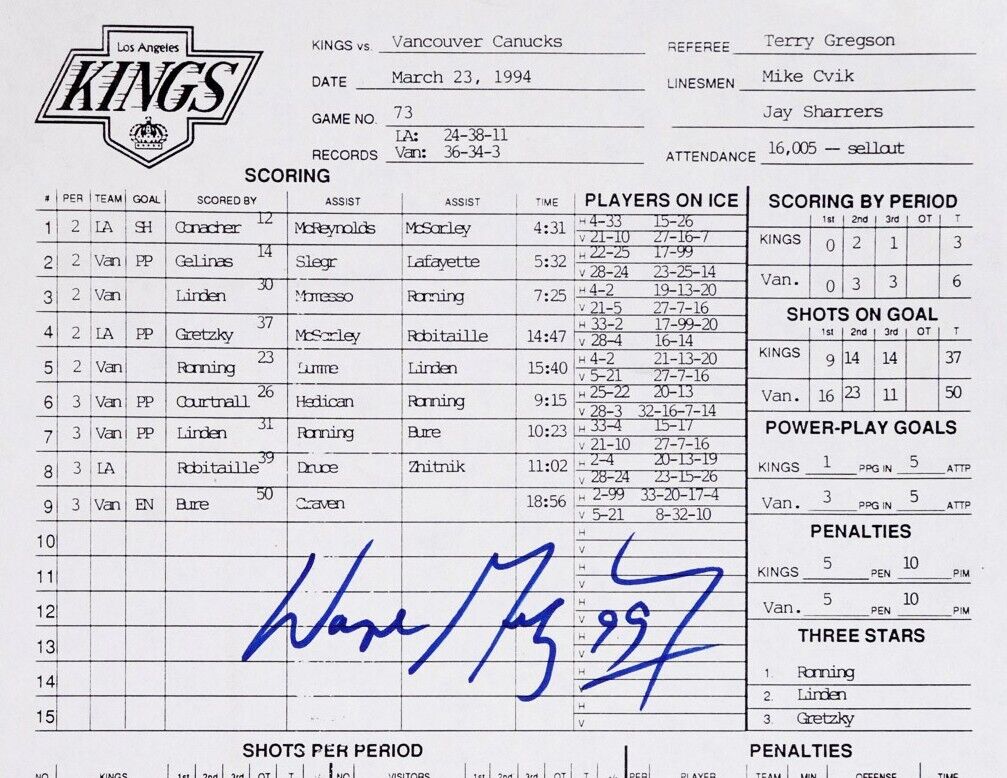 Los Angeles
KINGS
KINGS vs. Vancouver Canucks
DATE March 23, 1994
GAME NO. 73
RECORDS LA: 24-38-11
Van: 36-34-3
REFEREE Terry Gregson
LINESMEN Mike Cvik
Jay Sharrers
ATTENDANCE 16,005 -- sellout
SCORING
# PER TEAM GOAL SCORED BY ASSIST ASSIST TIME PLAYERS ON ICE
1 2 LA SH Conacher 12 McReynolds McSorley 4:31 H 4-33 15-26
V 21-10 27-16-7
2 2 Van PP Gelinas 14 Slegr Lafayette 5:32 H 22-25 17-99
V 28-24 23-25-14
3 2 Van Linden 30 Momesso Ronning 7:25 H 4-2 19-13-20
V 21-5 27-7-16
4 2 LA PP Gretzky 37 McSorley Robitaille 14:47 H 33-2 17-99-20
V 28-4 16-14
5 2 Van Ronning 23 Lumme Linden 15:40 H 4-2 21-13-20
V 5-21 27-7-16
6 3 Van PP Courtnall 26 Hedican Ronning 9:15 H 25-22 20-13
V 28-3 32-16-7-14
7 3 Van PP Linden 31 Ronning Bure 10:23 H 33-4 15-17
V 21-10 27-7-16
8 3 LA Robitaille 39 Druce Zhitnik 11:02 H 2-4 20-13-19
V 28-24 23-15-26
9 3 Van EN Bure 50 Craven 18:56 H 2-99 33-20-17-4
V 5-21 8-32-10
10 H
V
11 H
V
12 H
V
13 H
V
14 H
V
15 H
V
Wayne Gretzky 99
SCORING BY PERIOD
1st 2nd 3rd OT T
KINGS 0 2 1 3
Van. 0 3 3 6
SHOTS ON GOAL
1st 2nd 3rd OT T
KINGS 9 14 14 37
Van. 16 23 11 50
POWER-PLAY GOALS
KINGS 1 PPG IN 5 ATTP
Van. 3 PPG IN 5 ATTP
PENALTIES
KINGS 5 PEN 10 PIM
Van. 5 PEN 10 PIM
THREE STARS
1. Ronning
2. Linden
3. Gretzky
SHOTS PER PERIOD
NO. KINGS 1st 2nd 3rd OT T +/- NO. VISITORS 1st 2nd 3rd OT T +/-
PENALTIES
PER PLAYER TEAM MIN OFFENSE TIME